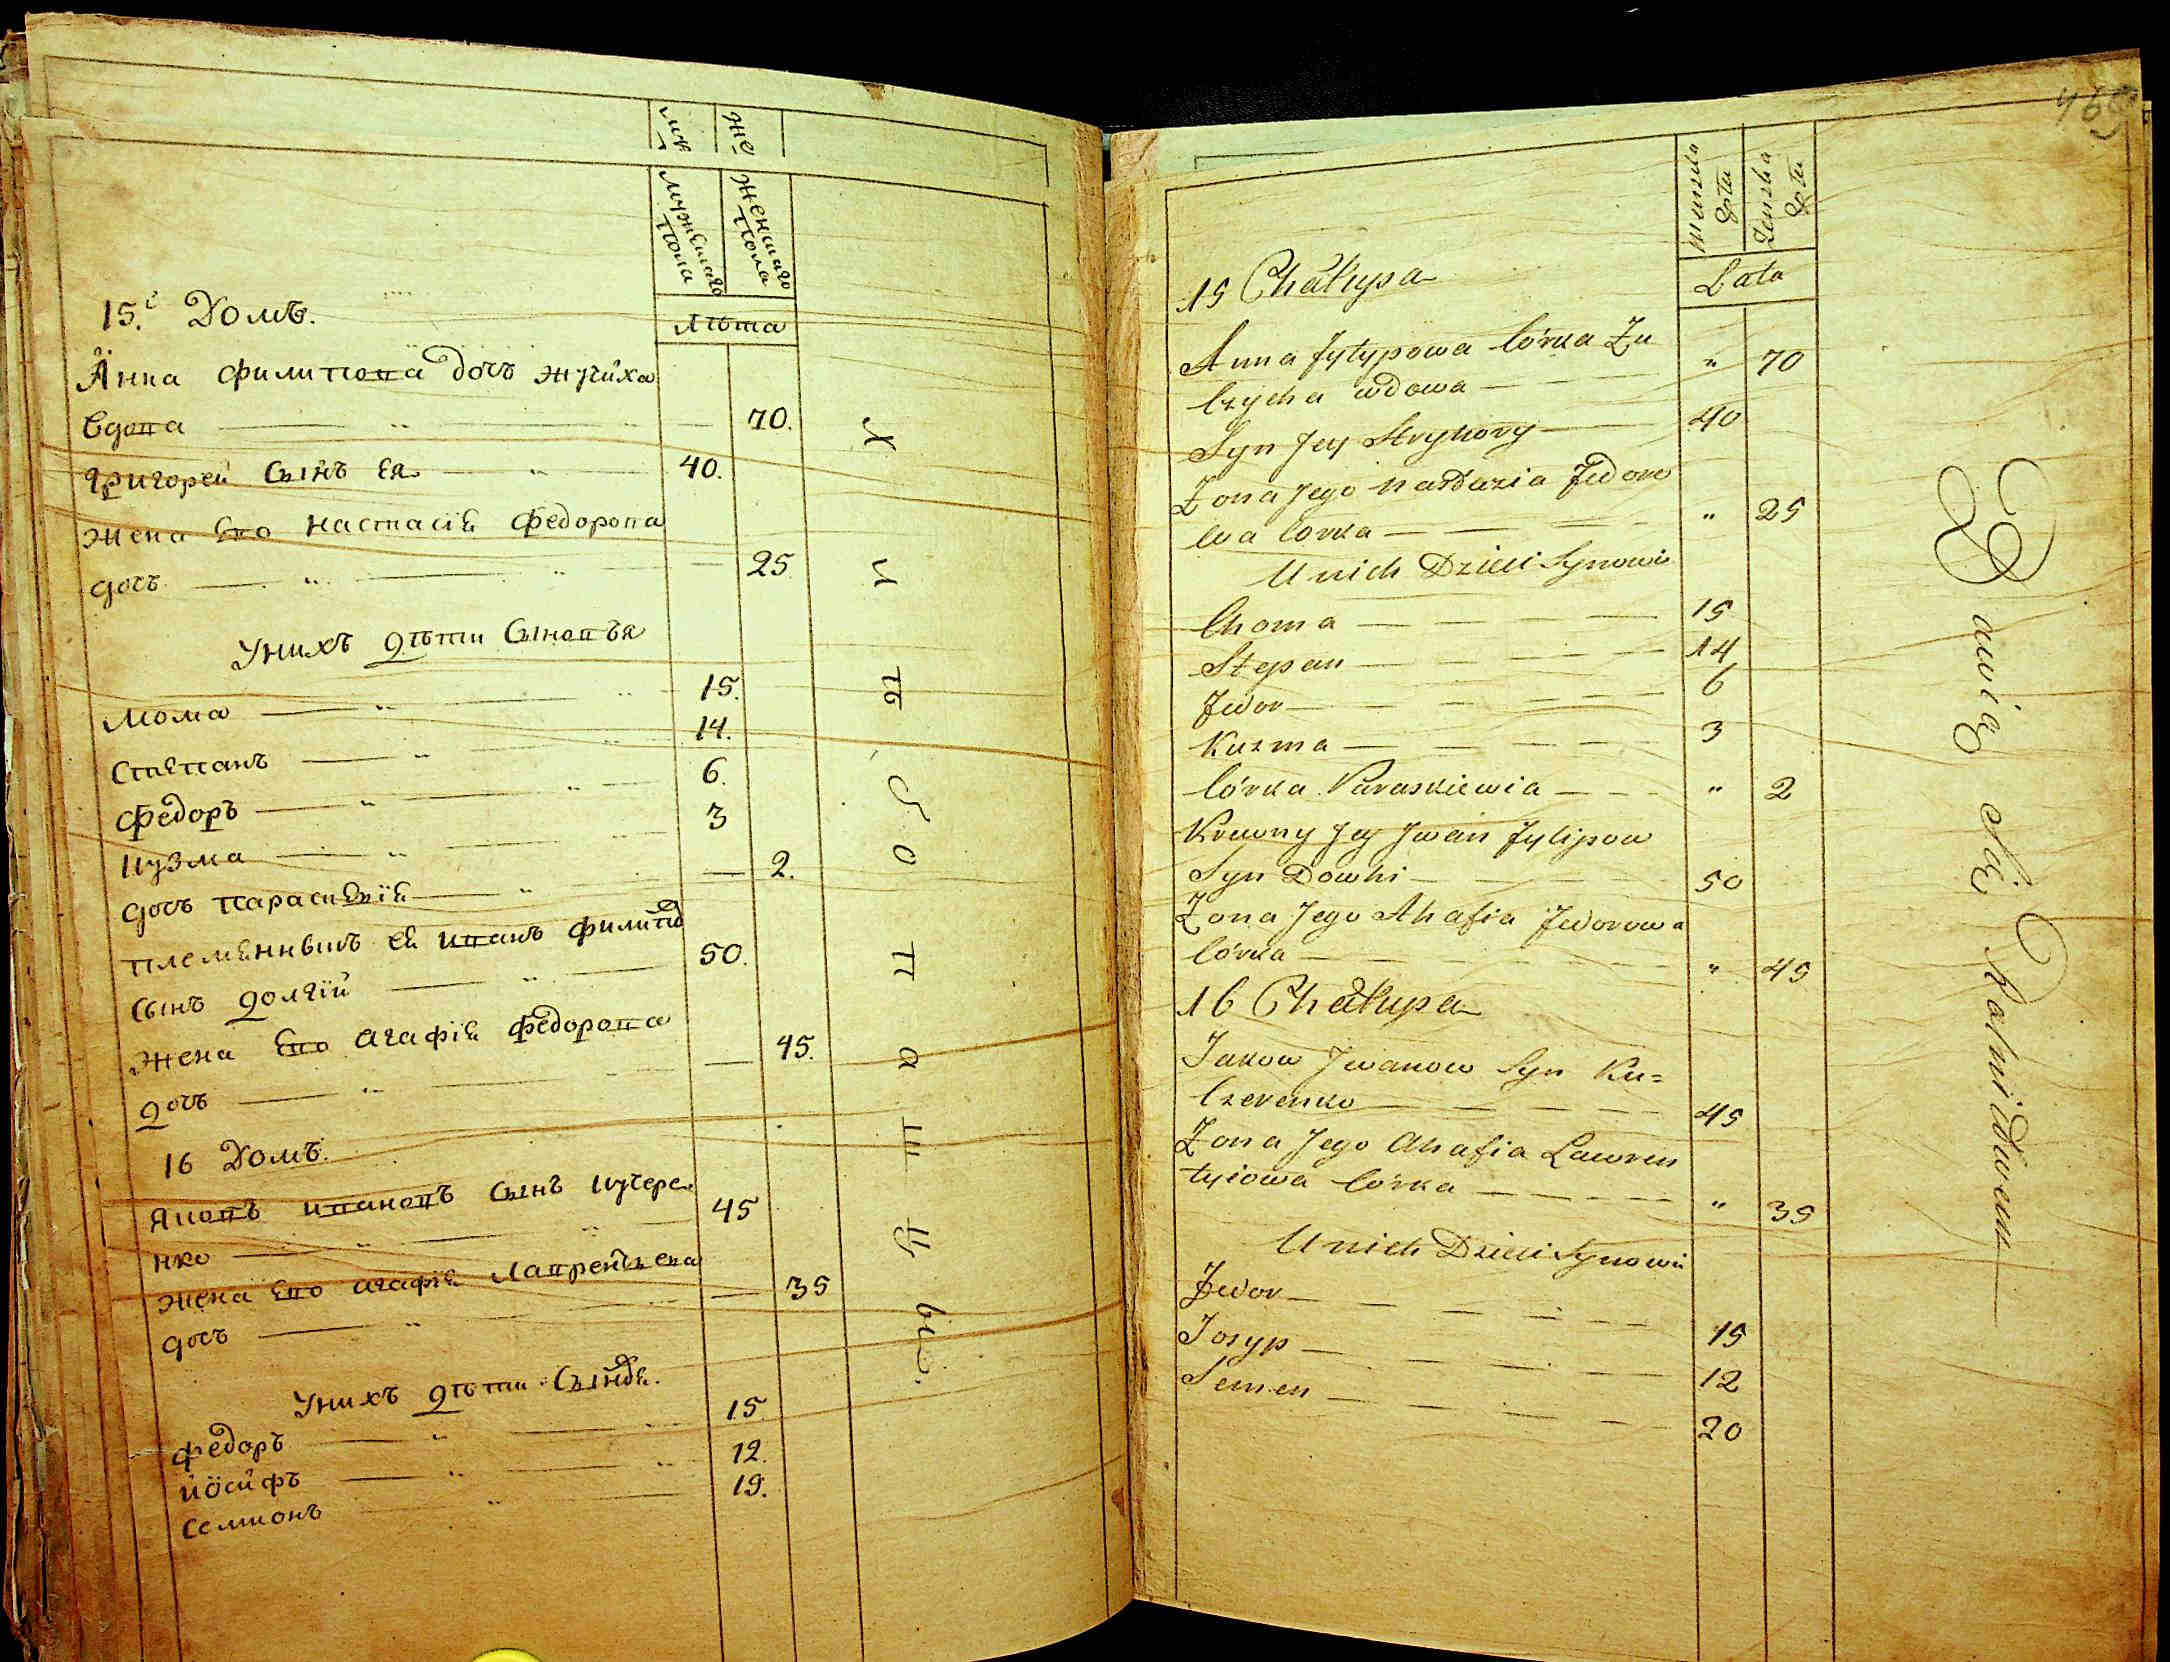 Мужескаго пола
Женскаго пола
Лѣта
15.е Домъ.
Анна Филипова дочь Жучиха
вдова 70.
Григорей сынъ ея 40.
жена его Настасія Федорова
дочь 25.
У нихъ дѣти сыновья
Хома 15.
Степанъ 14.
Федоръ 6.
Кузма 3
дочь Параскевія 2.
племянникъ ея Иванъ Филипо
сынъ Долгій 50.
жена его Агафія Федорова
дочь 45.
16 Домъ.
Яковъ Ивановъ сынъ Кучере
нко 45
жена его Агафія Лаврентьева
дочь 35
У нихъ дѣти сынов.
Федоръ 15
Иосифъ 12.
Семионъ 19.
Хлѣбопашцы.
469
Męzka Płeć
Żeńska Płeć
Lata
15 Chałupa
Anna Fylypowa Córka Żu
czycha wdowa — " 70
Syn Jey Hryhory — 40
Żona Jego Nastazia Fedoro
wa Córka — " 25
U nich Dzieci Synowie
Choma — 15
Stepan — 14
Fedor — 6
Kuzma — 3
Córka Paraskiewia — " 2
Krewny Jey Iwan Fylipow
Syn Dowhi — 50
Żona Jego Ahafia Fedorowa
Córka — " 45
16 Chałupa
Jakow Iwanow Syn Ku=
czerenko — 45
Żona Jego Ahafia Lawren
tyiowa Córka — " 35
U nich Dzieci Synowie
Fedor — 15
Josyp — 12
Semen — 20
Bawią Się Rolnictwem